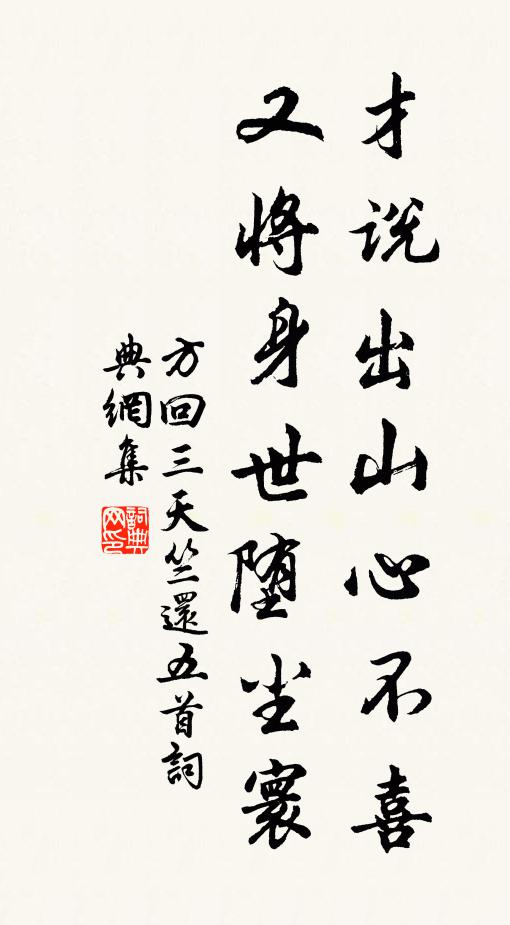 才说出山心不喜
又将身世堕尘寰
方回三天竺還五首詞
典網集
詞典
网印